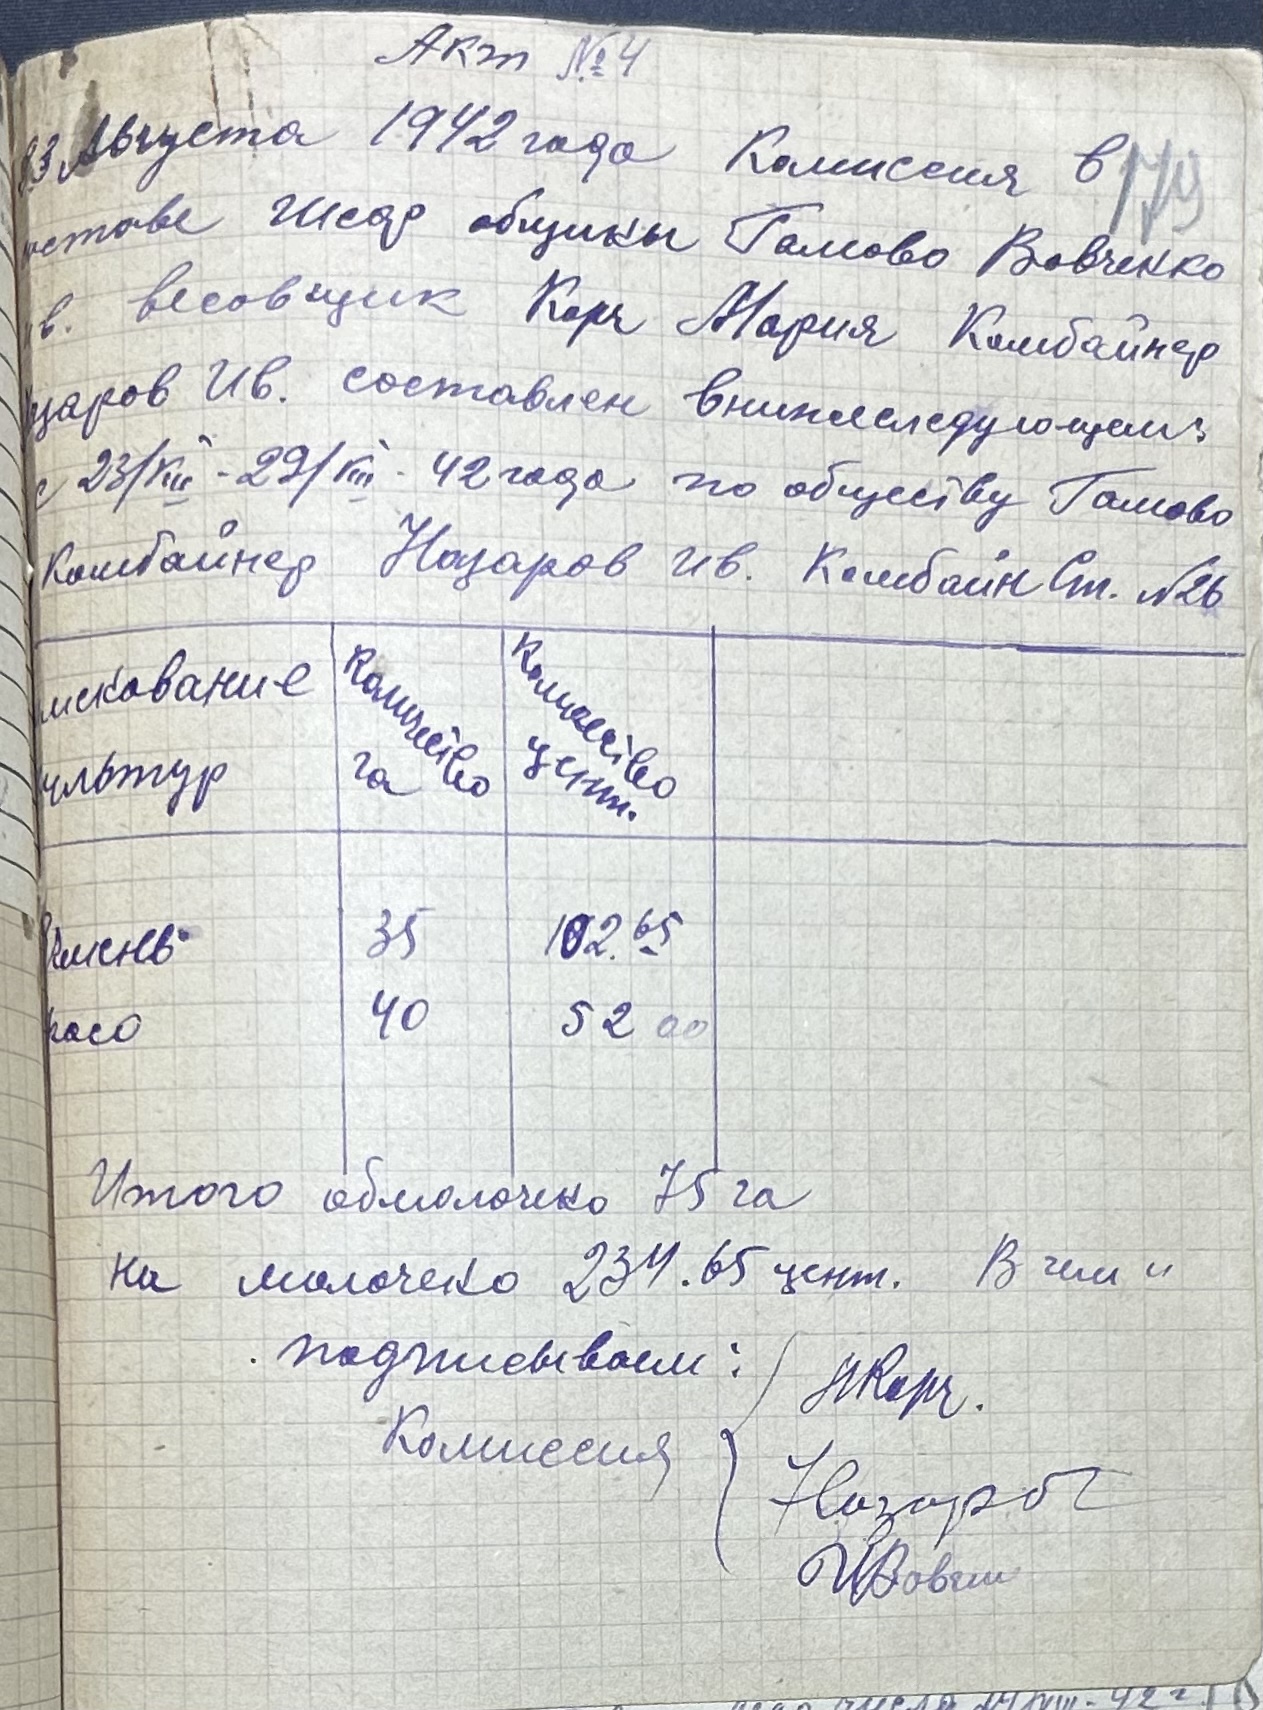 Акт №4
23 Августа 1942 года Комиссия в
179
оставе Шеф общины Тамово Вовченко
в. весовщик Корч Мария Комбайнер
заров Ив. составлен внижеследующем
с 23/VIII - 29/VIII - 42 года по обществу Тамово
Комбайнер Назаров Ив. Комбайн Ст. №26
менование
ультур
Количество
га
Количество
цент.
ячмень 35 182.65
росо 40 52 00
Итого обмолочено 75 га
На молочено 234.65 цент. В чем и
подписываем:
Комиссия
МКорч.
Назаров
ИВовчен
числа 24/VIII - 42 г.